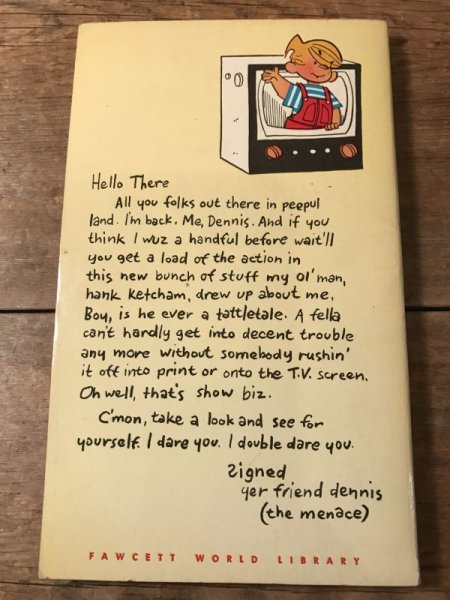 Hello There
All you folks out there in peepul
land. I'm back. Me, Dennis. And if you
think I wuz a handful before wait'll
you get a load of the action in
this new bunch of stuff my ol' man,
hank ketcham, drew up about me.
Boy, is he ever a tattletale. A fella
can't hardly get into decent trouble
any more without somebody rushin'
it off into print or onto the T.V. screen.
Oh well, that's show biz.
C'mon, take a look and see for
yourself. I dare you. I double dare you.
Signed
yer friend dennis
(the menace)
FAWCETT WORLD LIBRARY